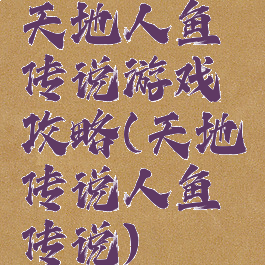 天地人鱼
传说游戏
攻略(天地
传说人鱼
传说)